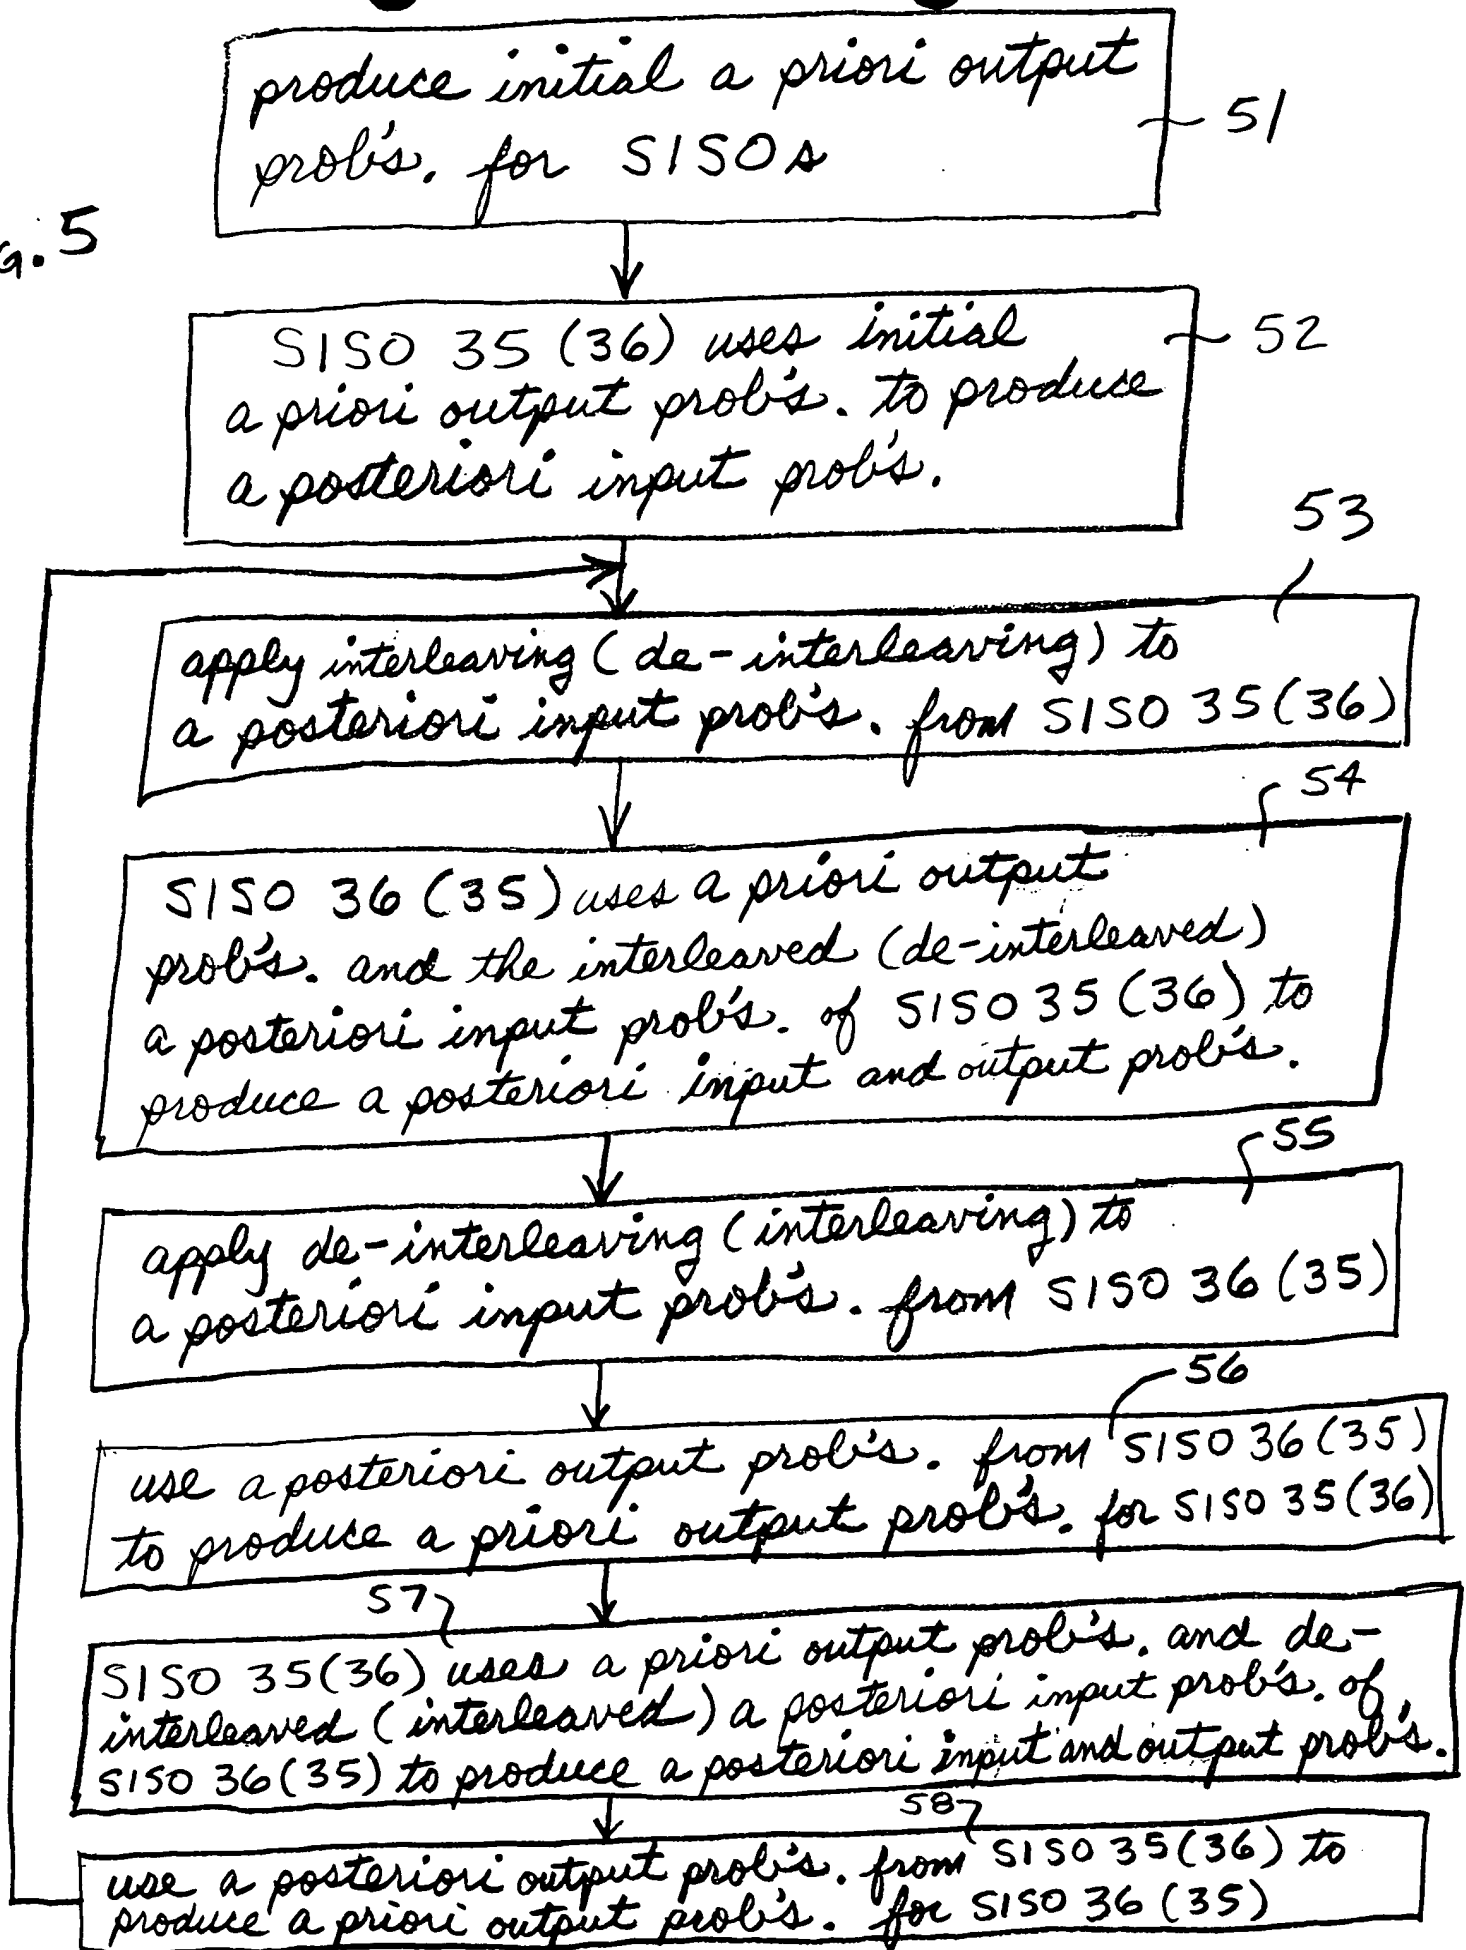 produce initial a priori output
prob's. for SISOs
51
G. 5
SISO 35 (36) uses initial
52
a priori output prob's. to produce
a posteriori input prob's.
53
apply interleaving (de-interleaving) to
a posteriori input prob's. from SISO 35 (36)
54
SISO 36 (35) uses a priori output
prob's. and the interleaved (de-interleaved)
a posteriori input prob's. of SISO 35 (36) to
produce a posteriori input and output prob's.
55
apply de-interleaving (interleaving) to
a posteriori input prob's. from SISO 36 (35)
56
use a posteriori output prob's. from SISO 36 (35)
to produce a priori output prob's. for SISO 35 (36)
57
SISO 35 (36) uses a priori output prob's. and de-
interleaved (interleaved) a posteriori input prob's. of
SISO 36 (35) to produce a posteriori input and output prob's.
58
use a posteriori output prob's. from SISO 35 (36) to
produce a priori output prob's. for SISO 36 (35)